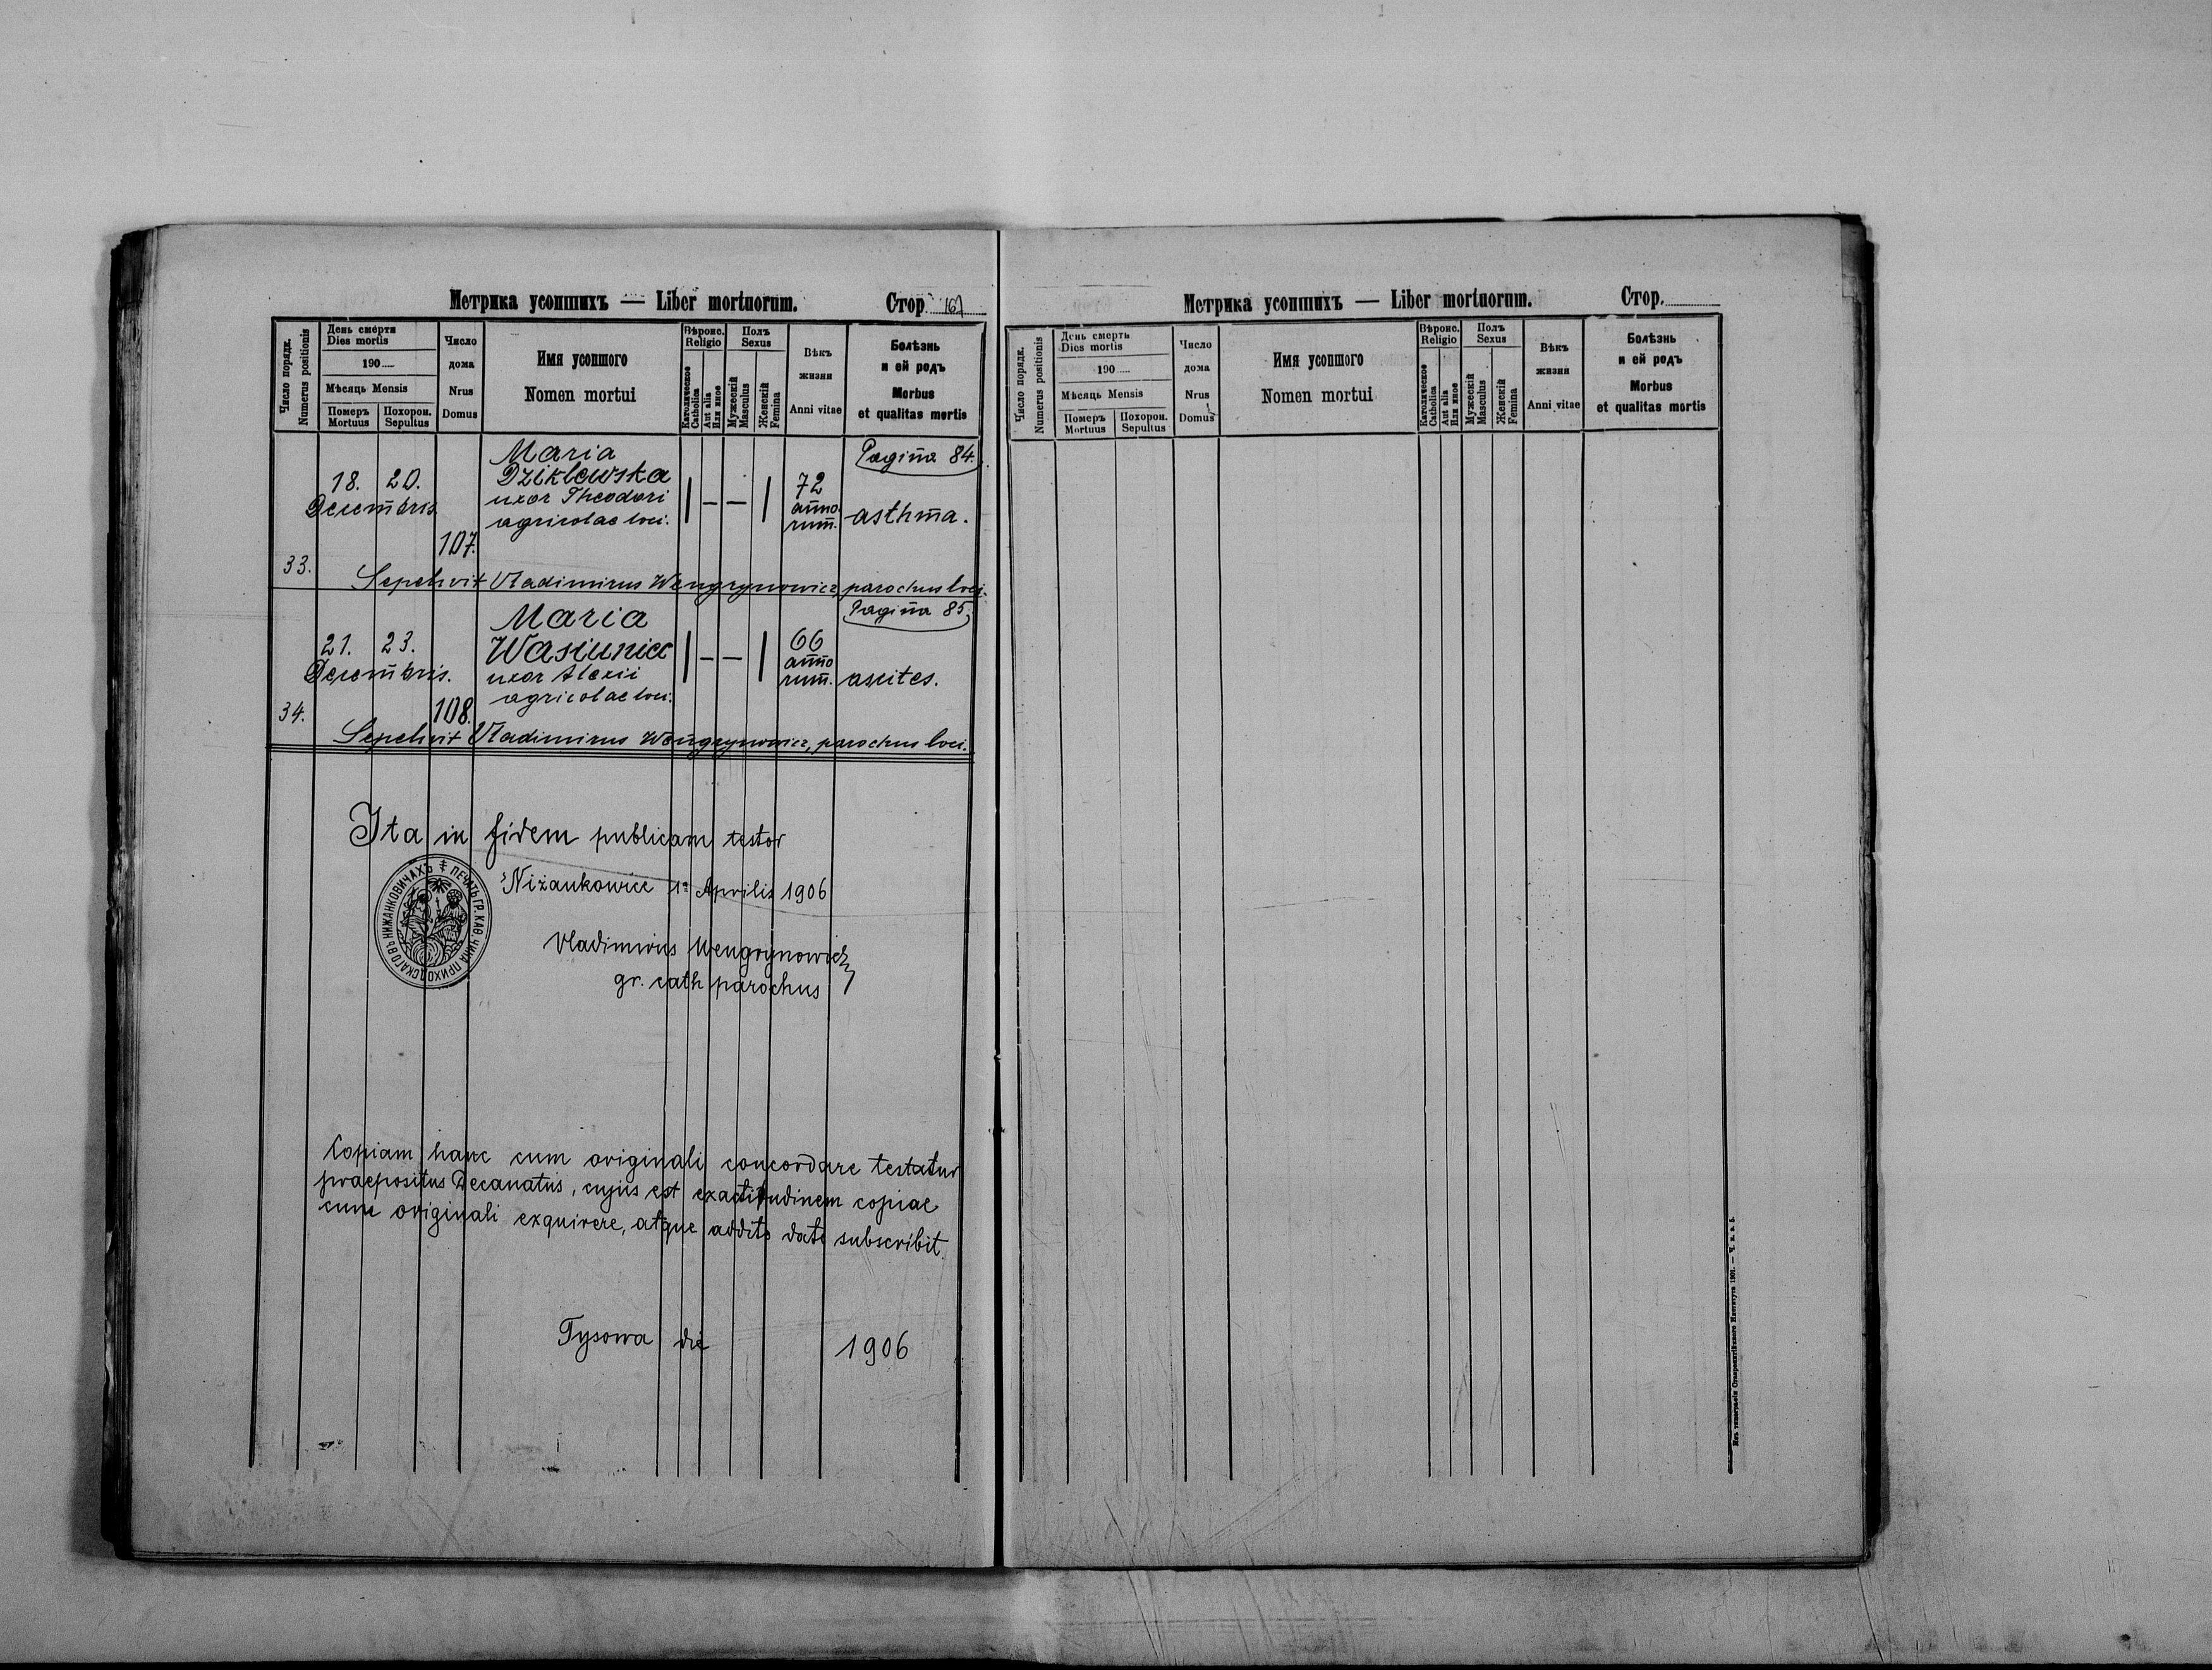 Метрика усопшихъ — Liber mortuorum.
Стор. 167
Число порядк.
Numerus positionis
День смерти
Dies mortis
190
Мѣсяць Mensis
Померъ
Mortuus
Похорон.
Sepultus
Число
дома
Nrus
Domus
Имя усопшого
Nomen mortui
Вѣроис.
Religio
Католическое
Catholica
Aut alia
Или иное
Полъ
Sexus
Мужескій
Masculus
Женскій
Femina
Вѣкъ
жизни
Anni vitae
Болѣзнь
и ей родъ
Morbus
et qualitas mortis
Pagina 84.
33.
18. 20.
Decembris
107.
Maria
Dziklewska
uxor Theodori
agricolae loci.
| — — |
72
anno
rum.
asthma.
Sepelivit Vladimirus Wengrynowicz, parochus loci.
Pagina 85.
34.
21. 23.
Decembris.
108.
Maria
Wasiunia
uxor Alexii
agricolae loci.
| — — |
66
anno
rum.
ascites.
Sepelivit Vladimirus Wengrynowicz, parochus loci.
Ita in fidem publicam testor
Niżankowice 1a Aprilis 1906
Vladimirus Wengrynowicz
gr. cath parochus
ПЕЧАТЬ ГР. КАѲ. ЧИНА ПРИХОДСКАГО ВЪ НИЖАНКОВИЧАХЪ
Copiam hanc cum originali concordare testatur
praepositus Decanatus, cujus est exactitudinem copiae
cum originali exquirere, atque addito dato subscribit.
Tysowa die 1906
Метрика усопшихъ — Liber mortuorum.
Стор.
Число порядк.
Numerus positionis
День смерть
Dies mortis
190
Мѣсяць Mensis
Померъ
Mortuus
Похорон.
Sepultus
Число
дома
Nrus
Domus
Имя усопшого
Nomen mortui
Вѣроис.
Religio
Католическое
Catholica
Aut alia
Или иное
Полъ
Sexus
Мужескій
Masculus
Женскій
Femina
Вѣкъ
жизни
Anni vitae
Болѣзнь
и ей родъ
Morbus
et qualitas mortis
Изъ типографіи Ставропигійского Института 1901.